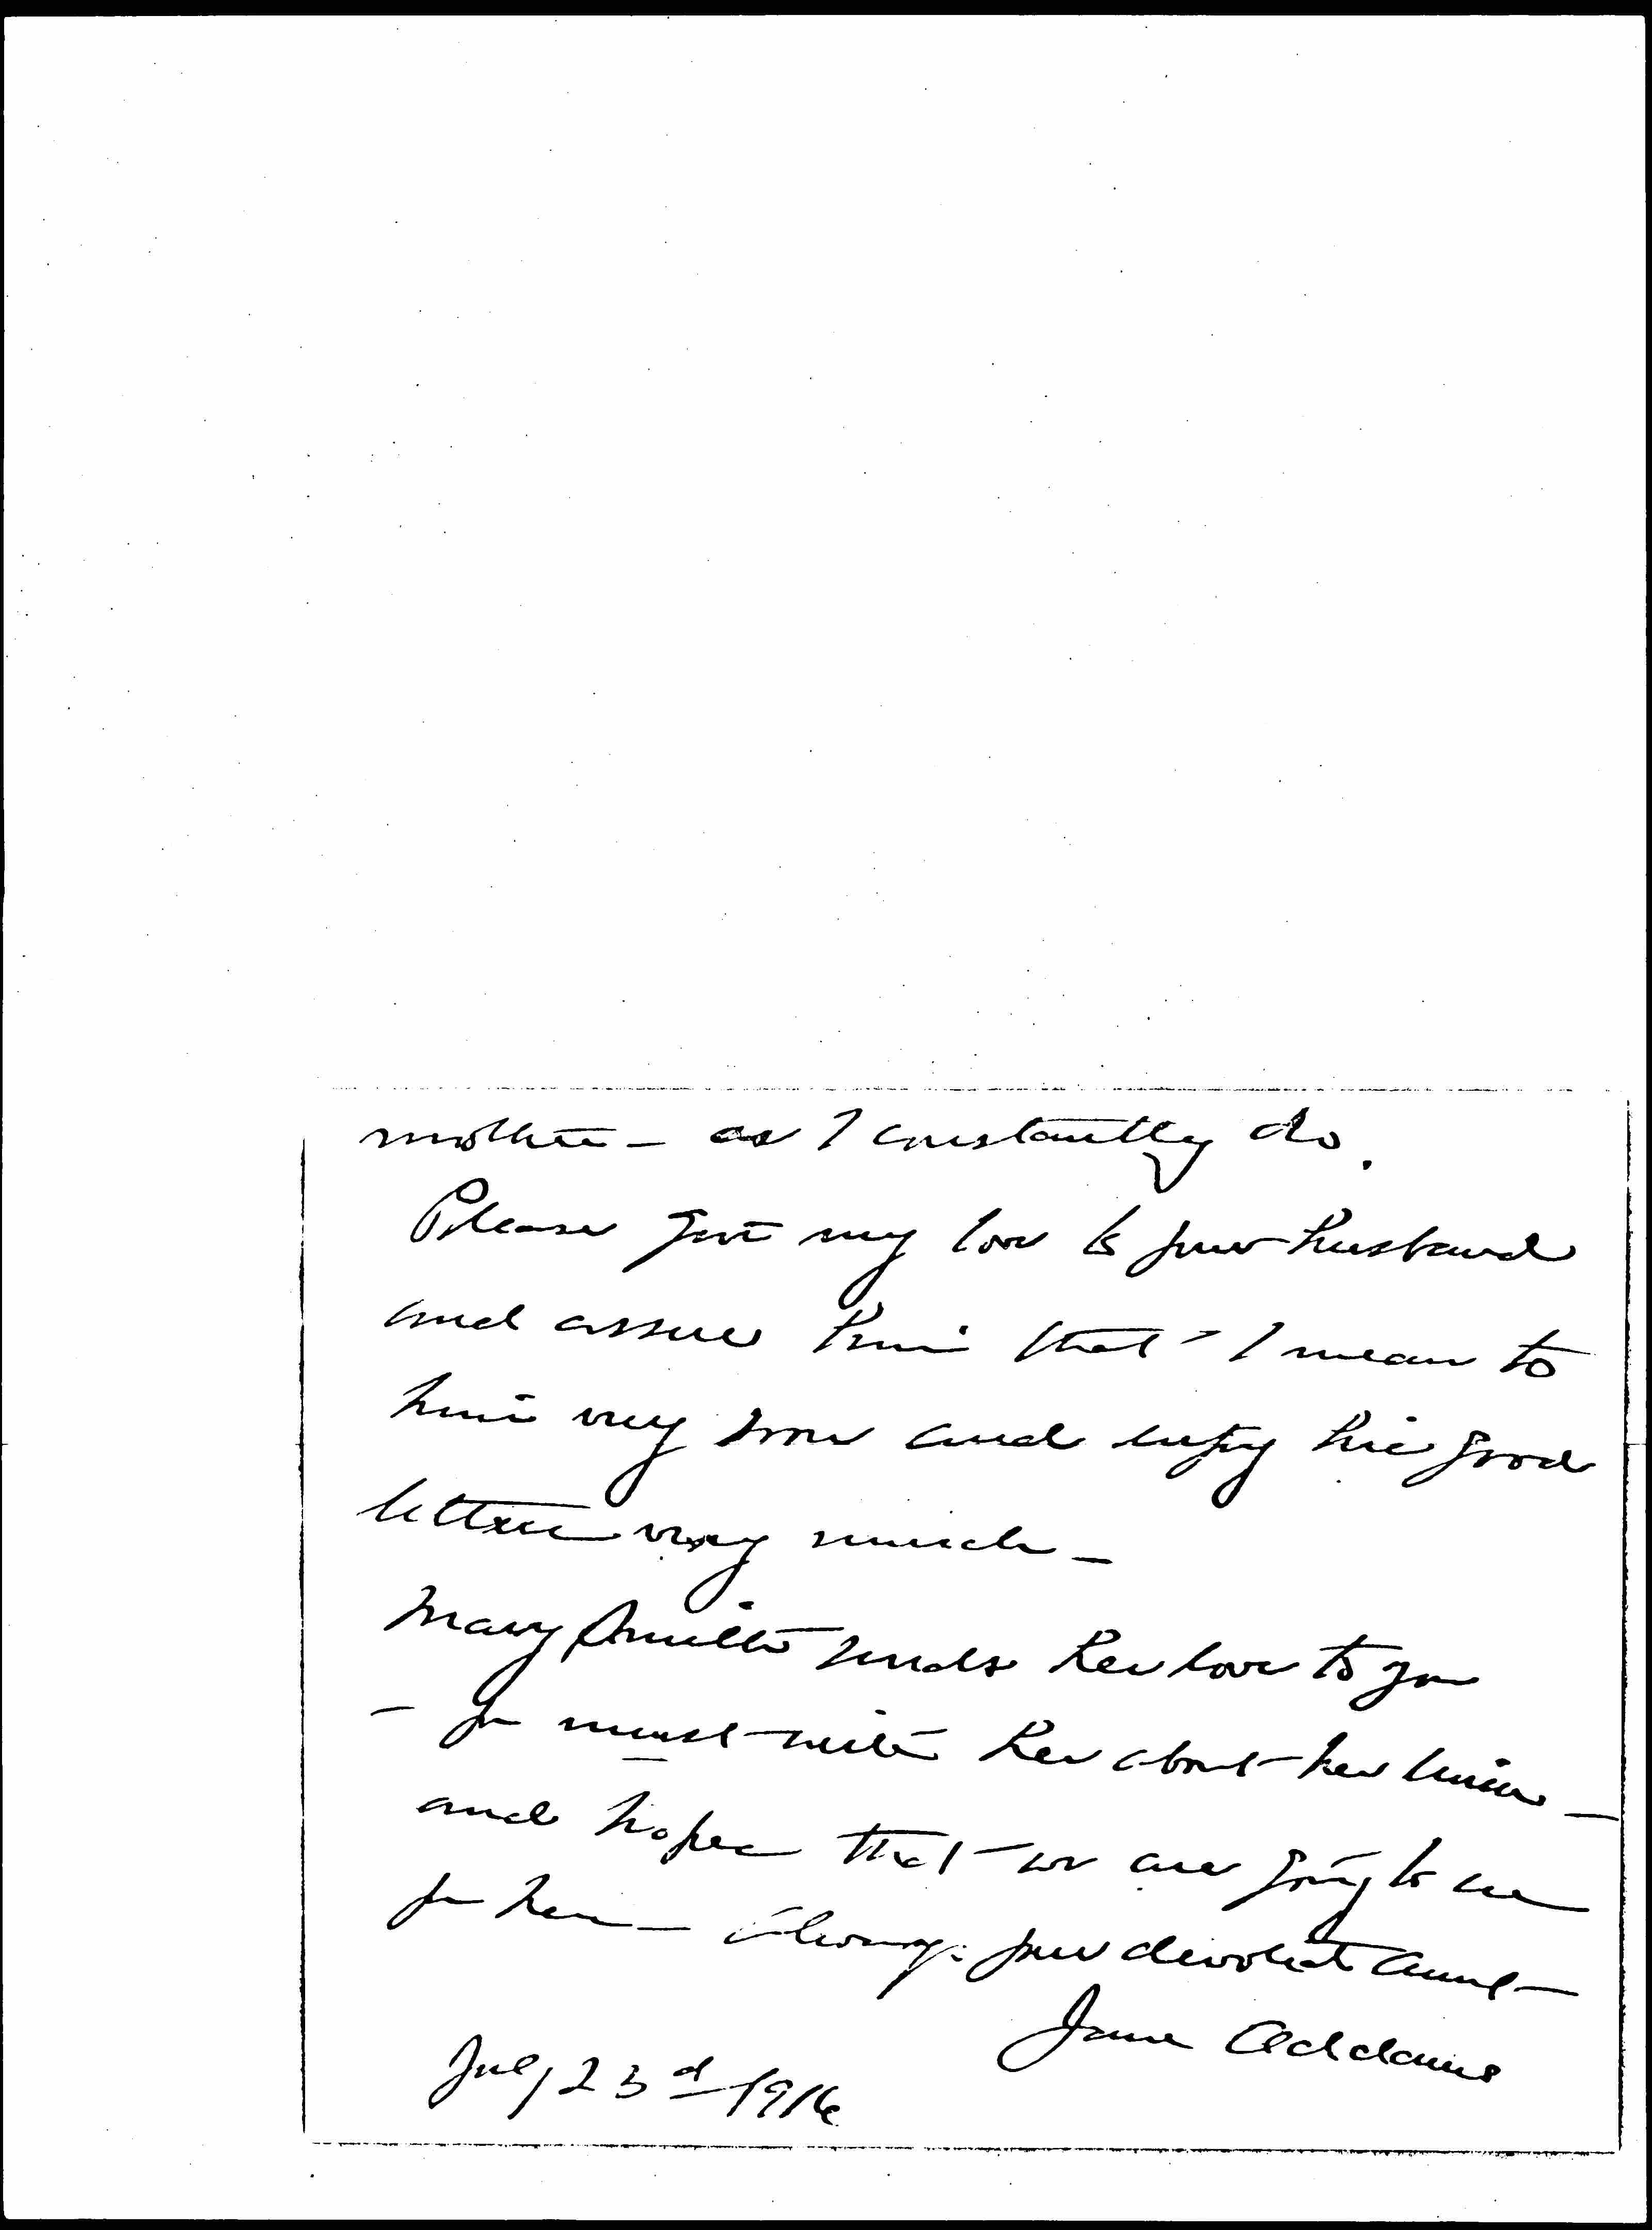 mother – as I constantly do.
Please give my love to your husband
and assure him that I mean to
him very soon and enjoy his good
letters very much –
Mary Smith sends her love to you
– you must write her about her
and hopes that we are going to see
you here – Always your devoted aunt –
Jane Addams
July 23d 1916